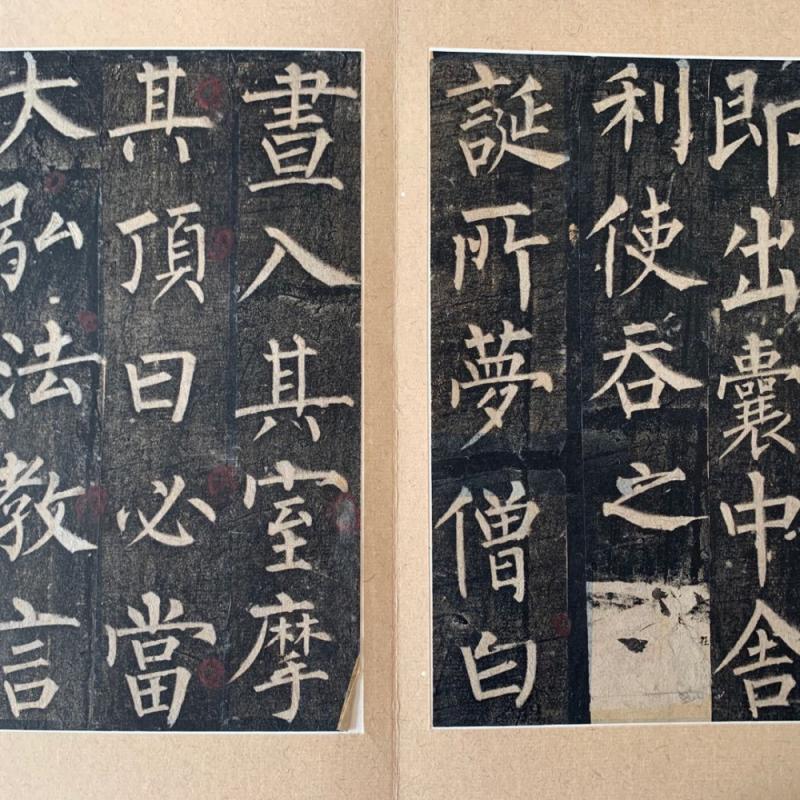 即出囊中舍
利使吞之
誕所夢僧白
晝入其室摩
其頂曰必當
大弘法教言